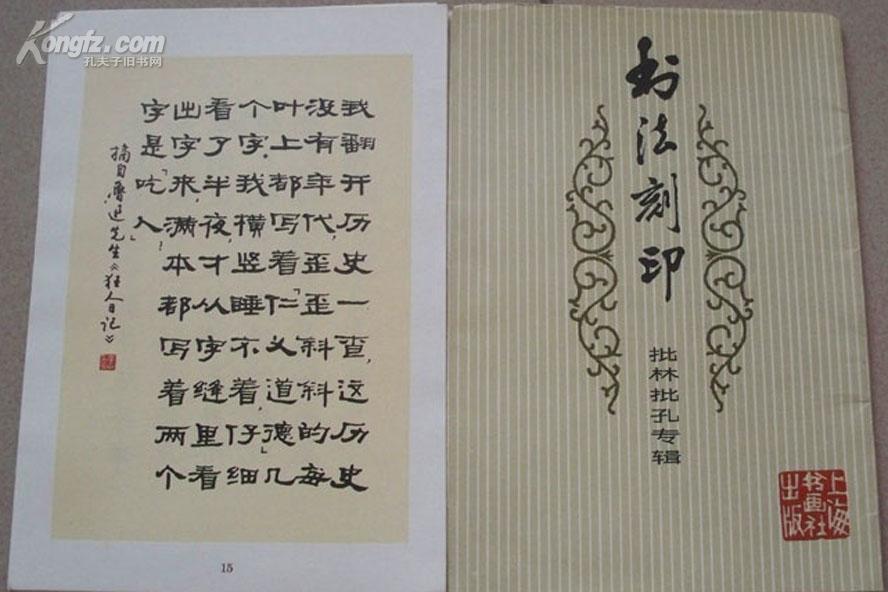 Kongfz.com
孔夫子旧书网
我翻开历史一查,这历史
没有年代,歪歪斜斜的每
叶上都写着「仁义道德」几
个字,我横竖睡不着,仔细
看了半夜,才从字缝里看
出字来,满本都写着两个
字是「吃人」!
摘自鲁迅先生《狂人日记》
15
书法刻印
批林批孔专辑
上海
书画社
出版